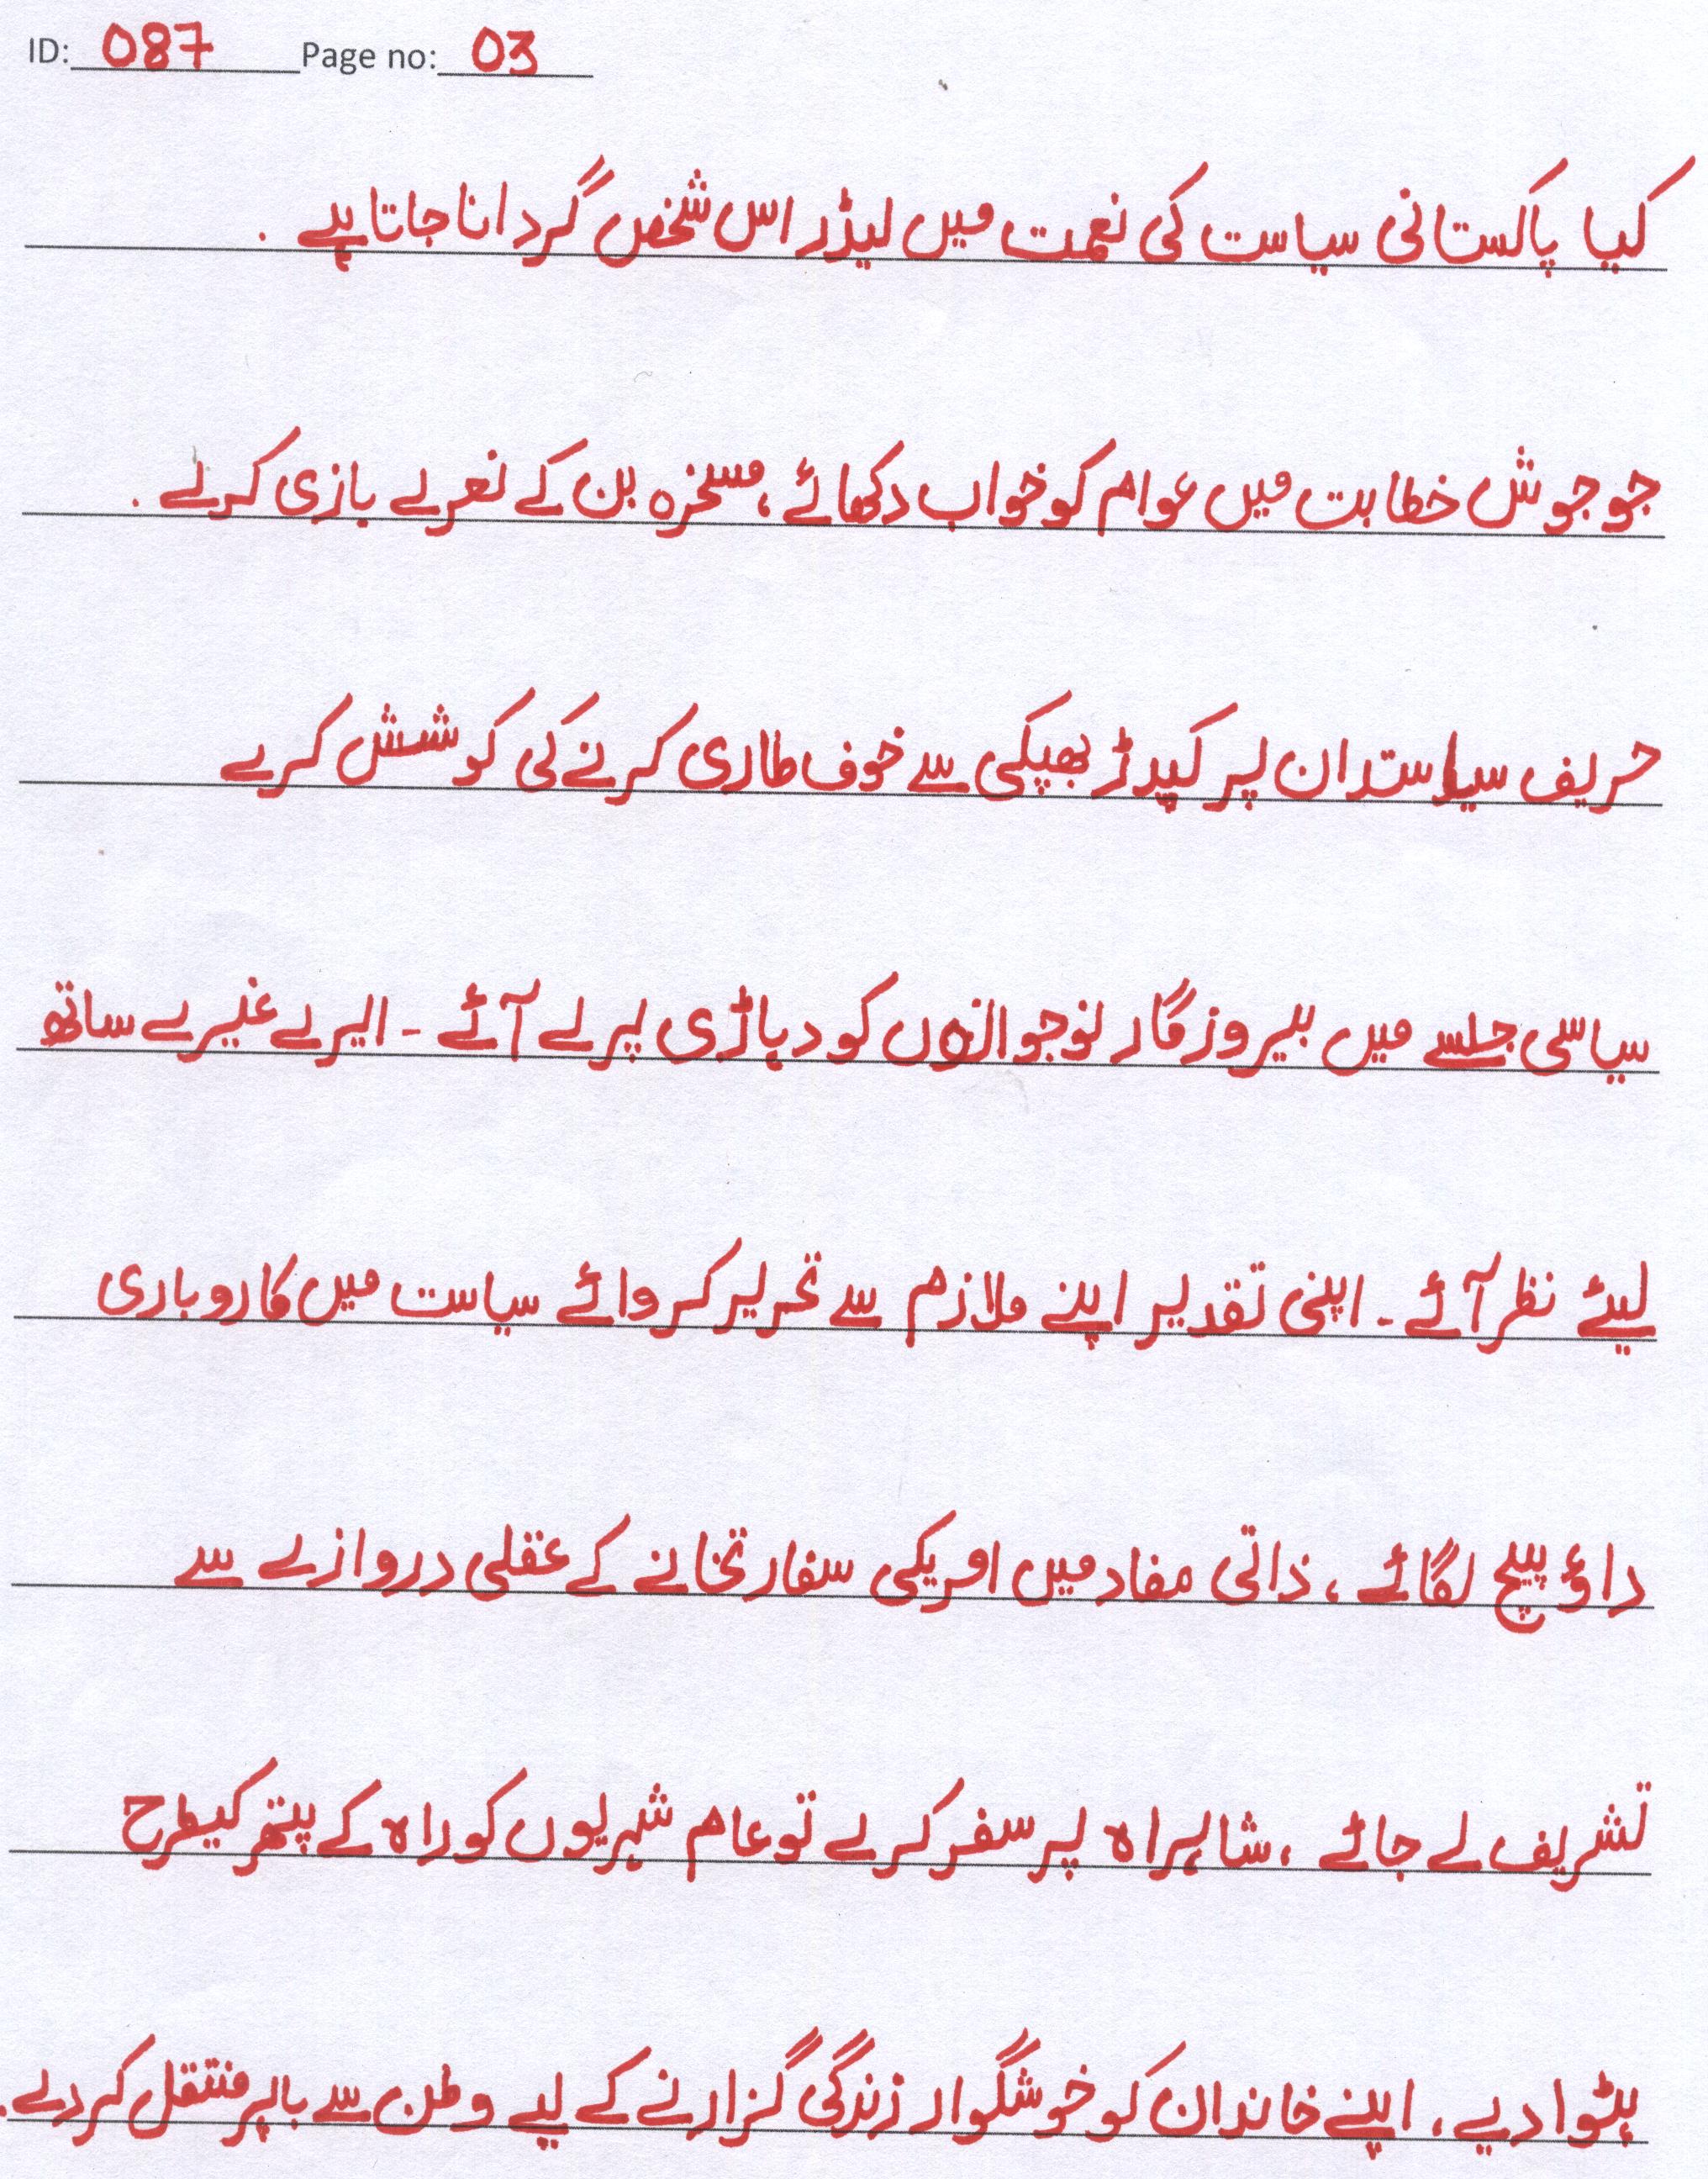 ID: 087 Page no: 03
کیا پاکستانی سیاست کی نعمت میں لیڈر اس شخص گردانا جاتا ہے .
جو جوش خطابت میں عوام کو خواب دکھائے ، مسخرہ بن کے نعرے بازی کرے .
حریف سیاستدان پر گیدڑ بھپکی سے خوف طاری کرنے کی کوشش کرے
سیاسی جلسے میں بیروزگار نوجوانوں کو دہاڑی پر لے آئے - ایرے غیرے ساتھ
لیئے نظر آئے - اپنی تقدیر اپنے ملازم سے تحریر کروائے سیاست میں کاروباری
داؤ پیچ لگائے ، ذاتی مفاد میں امریکی سفارتخانے کے عقلی دروازے سے
تشریف لے جائے ، شاہراہ پر سفر کرے تو عام شہریوں کو راہ کے پتھر کیطرح
ہٹوا دیے ، اپنے خاندان کو خوشگوار زندگی گزارنے کے لیے وطن سے باہر منتقل کر دے .